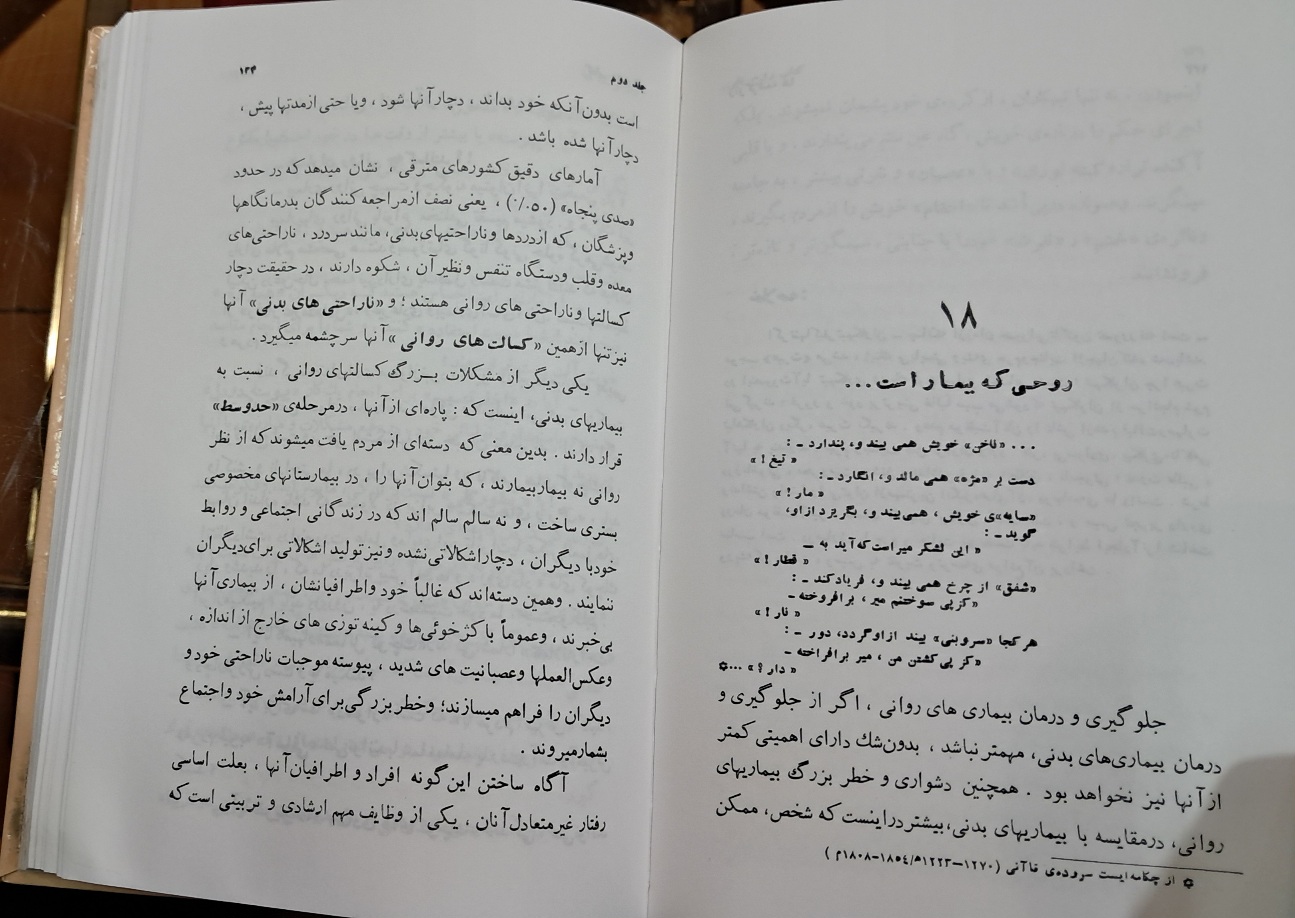 ۱۸
روحی که بیمار است...
... «ناخن» خویش همی بیند و، پندارد ـ :
« تیغ ! »
دست بر «مژه» همی مالد و، انگارد ـ :
« مار ! »
«سایه»ی خویش ، همی بیند و، بگریزد ازاو،
گوید ـ :
« این لشکر میراست که آید به ـ
« قطار ! »
«شفق» از چرخ همی بیند و، فریاد کند ـ :
« کز پی سوختنم میر ، برافروخته ـ
« نار ! »
هرکجا «سروبنی» بیند ازاو گردد، دور ـ :
« کز پی کشتن من ، میر برافراخته ـ
« دار ؟ » ...۞
جلو گیری و درمان بیماری های روانی ، اگر از جلو گیری و
درمان بیماری‌های بدنی، مهمتر نباشد ، بدون‌شك دارای اهمیتی کمتر
از آنها نیز نخواهد بود . همچنین دشواری و خطر بزرگ بیماریهای
روانی، درمقایسه با بیماریهای بدنی،بیشتر دراینست که شخص، ممکن
۞ از چکامه‌ایست سروده‌ی قاآنی (۱۲۷۰–۱۲۲۳ه/۱۸۵٤–۱۸۰۸م )
جلد دوم
۱۳۴
است بدون آنکه خود بداند ، دچار آنها شود ، ویا حتی ازمدتها پیش ،
دچار آنها شده باشد .
آمارهای دقیق کشورهای مترقی ، نشان میدهد که در حدود
«صدی پنجاه» (۵۰٪) ، یعنی نصف ازمراجعه کنندگان بدرمانگاهها
وپزشگان ، که ازدردها وناراحتیهای‌بدنی، مانند سردرد ، ناراحتی‌های
معده وقلب ودستگاه تنفس ونظیرآن ، شکوه دارند ، در حقیقت دچار
کسالتها وناراحتی های روانی هستند ؛ و «ناراحتی های بدنی» آنها
نیزتنها ازهمین «کسالت های روانی » آنها سرچشمه میگیرد .
یکی دیگر از مشکلات بــزرگ کسالتهای روانی ، نسبت به
بیماریهای بدنی، اینست که : پاره‌ای از آنها ، درمرحله‌ی «حدوسط»
قرار دارند . بدین معنی که دسته‌ای از مردم یافت میشوند که از نظر
روانی نه بیماربیمارند ، که بتوان آنها را ، در بیمارستانهای مخصوصی
بستری ساخت ، و نه سالم سالم اند که در زندگانی اجتماعی و روابط
خودبا دیگران ، دچاراشکالاتی نشده ونیز تولید اشکالاتی برای‌دیگران
ننمایند . وهمین دسته‌اند که غالباً خود واطرافیانشان ، از بیماری آنها
بی‌خبرند ، وعموماً با کژخوئی‌ها و کینه توزی های خارج از اندازه ،
وعکس‌العملها وعصبانیت های شدید ، پیوسته موجبات ناراحتی خود و
دیگران را فراهم میسازند؛ وخطر بزرگی‌برای آرامش خود واجتماع
بشمار میروند .
آگاه ساختن این گونه افراد و اطرافیان آنها ، بعلت اساسی
رفتار غیرمتعادل آنان ، یکی از وظایف مهم ارشادی و تربیتی است که